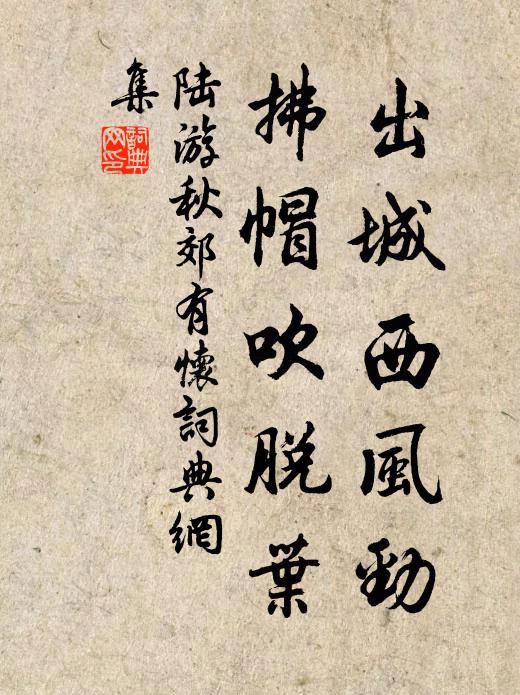 出城西風勁
拂帽吹脫葉
陆游秋郊有懷詞典網
集
詞典
网印